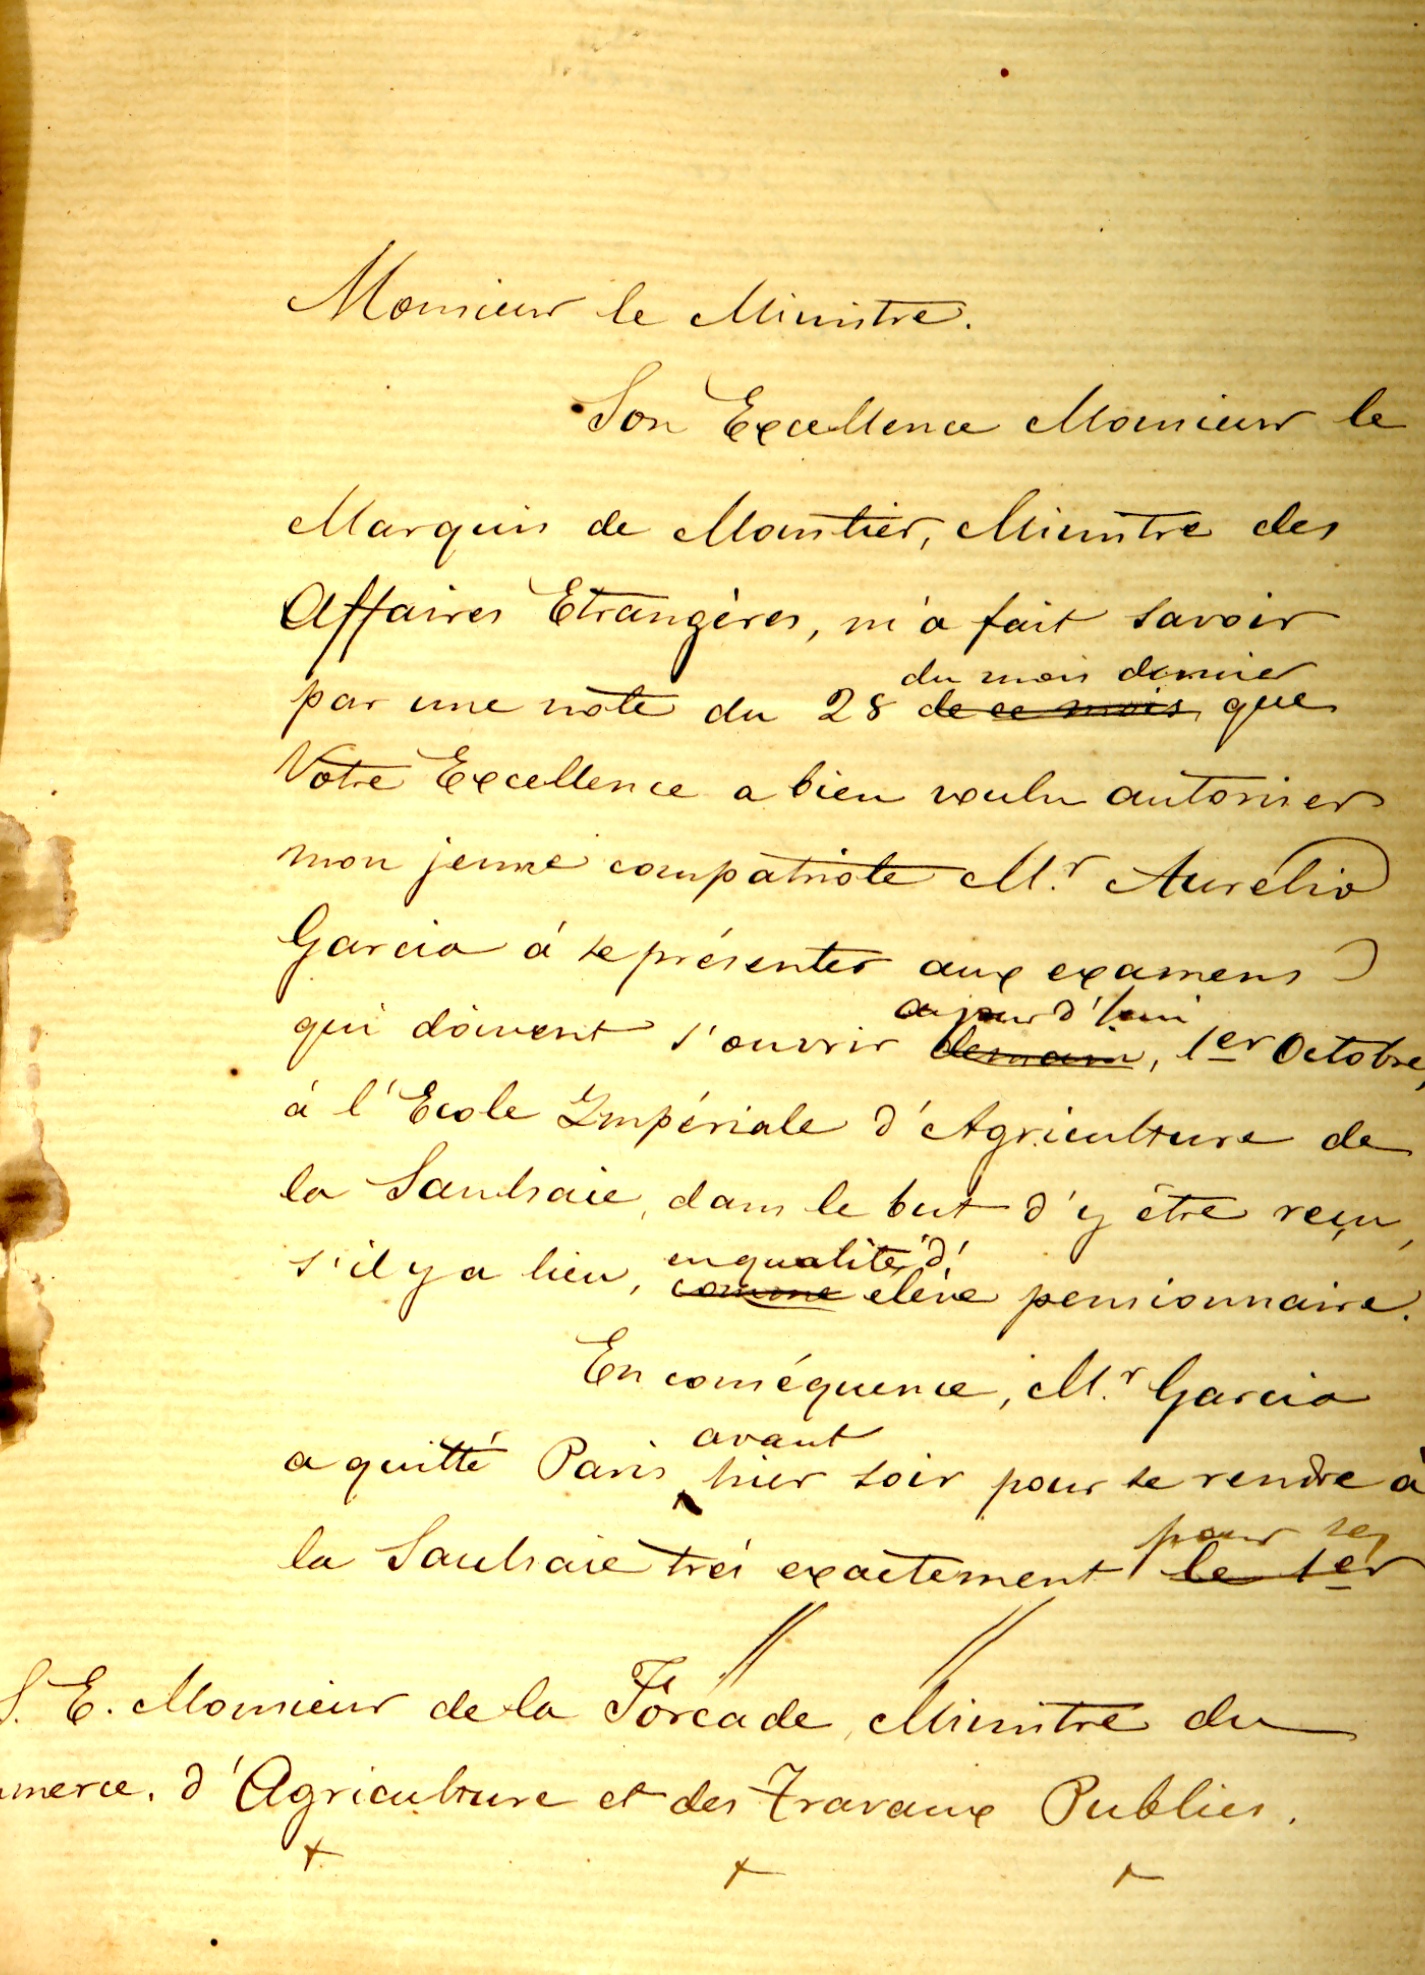 Monsieur le Ministre.
Son Excellence Monsieur le
Marquis de Moustier, Ministre des
Affaires Etrangères, m'a fait savoir
du mois dernier
par une note du 28 de ce mois, que
Votre Excellence a bien voulu autoriser
mon jeune compatriote M.r Aurélio
Garcia á se présenter aux examens
ajourd'hui
qui doivent s'ouvrir demain, 1er Octobre,
á l'Ecole Impériale d'Agriculture de
la Saulsaie, dans le but d'y être reçu,
en qualité d'
s'il y a lieu, comme elève pensionnaire.
En conséquence, M.r Garcia
avant
a quitté Paris hier soir pour se rendre à
la Saulsaie trés exactement le 1er
pour
S. E. Monsieur de la Forcade, Ministre du
mmerce, d'Agriculture et des Travaux Publics.